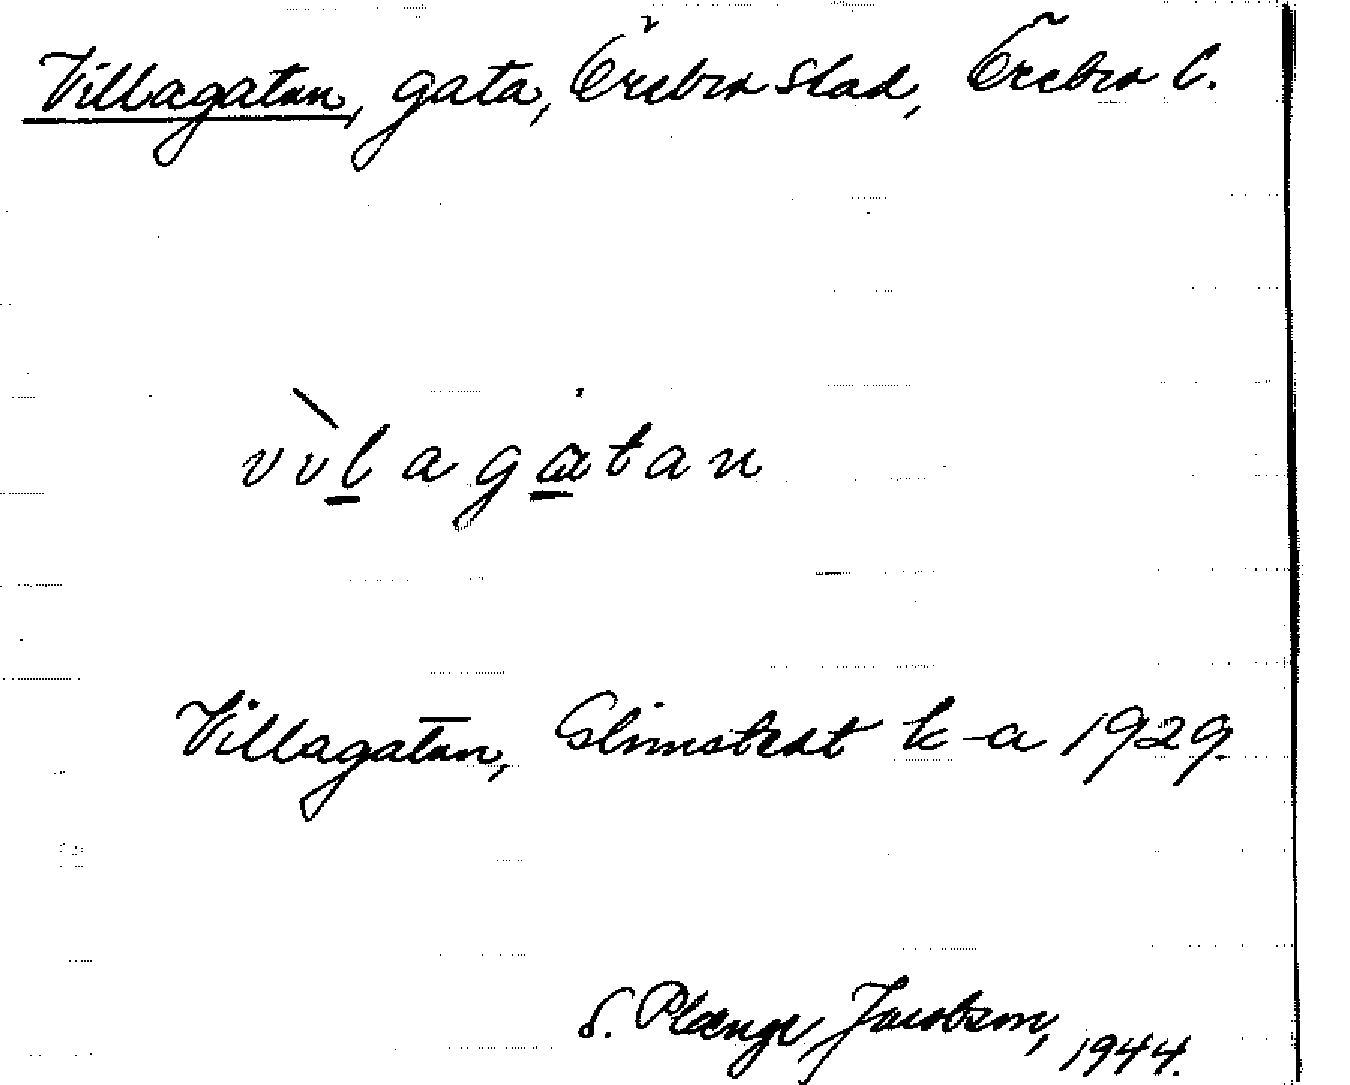 Villagatan, gata, Örebro stad, Örebro l.
vìlagatan
Villagatan, Glimstedt k-a 1929.
S. Plænge Jacobson, 1944.